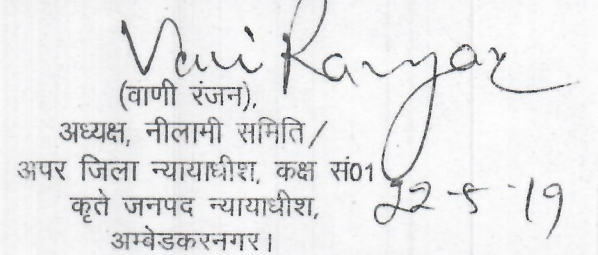 Vani Ranjan
(वाणी रंजन),
अध्यक्ष, नीलामी समिति/
अपर जिला न्यायाधीश, कक्ष सं01
कृते जनपद न्यायाधीश,
22-5-19
अम्बेडकरनगर।